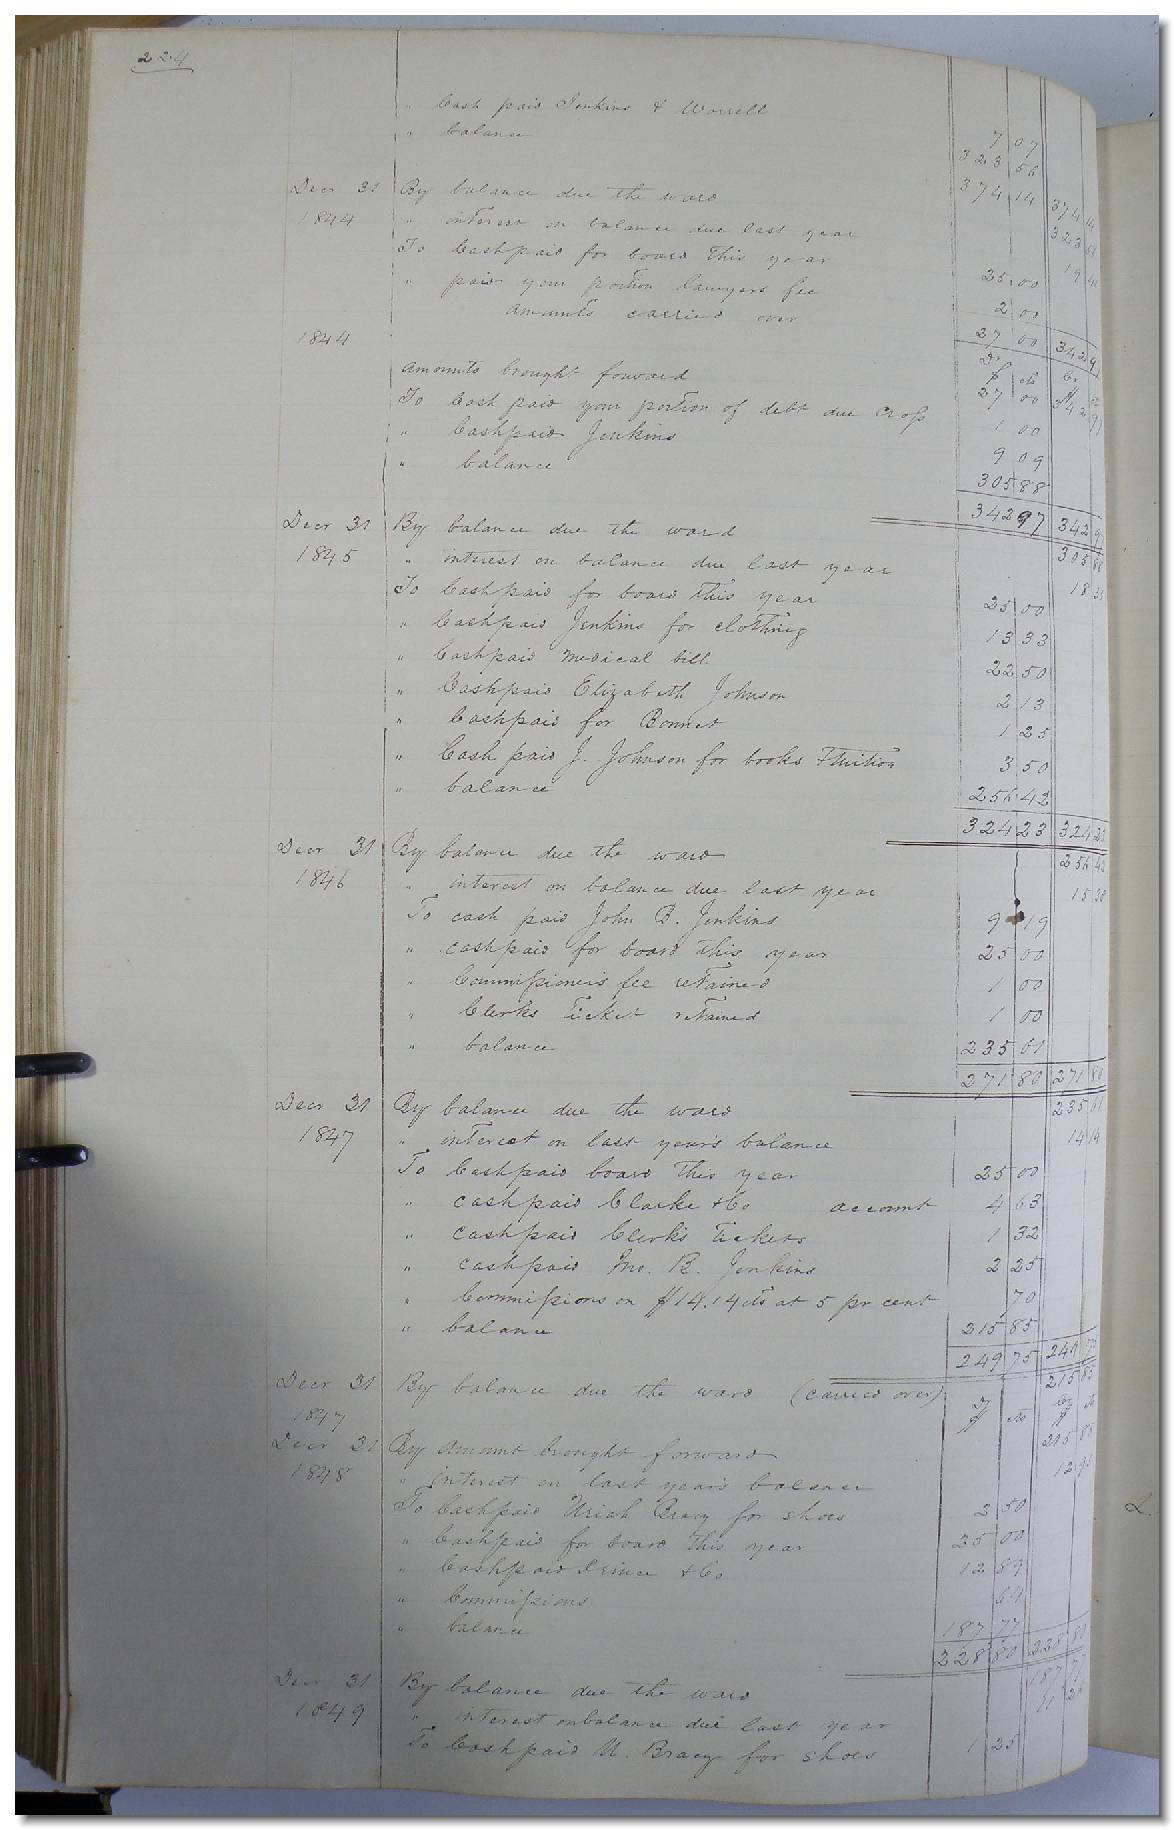 224
" Cash paid Jenkins & Worrell 7 07
" balance 323 56
374 14 374 14
Decr 31 By balance due the ward 323 56
1844 " interest on balance due last year 19 41
To Cashpaid for board this year 25 00
" paid your portion lawyers fee 2 00
amounts carried over 27 00 342 97
1844 Dr Cr
$ cts $
amounts brought forward 27 00 342 97
To Cash paid your portion of debt due Cross 1 00
" Cashpaid Jenkins 9 09
" balance 305 88
342 97 342 97
Decr 31 By balance due the ward 305 88
1845 " interest on balance due last year 18 35
To Cashpaid for board this year 25 00
" Cashpaid Jenkins for clothing 13 33
" Cashpaid medical bill 22 50
" Cashpaid Elizabeth Johnson 2 13
" Cashpaid for Bonnet 1 25
" Cash paid J. Johnson for books & tuition 3 50
" balance 256 42
324 23 324 23
Decr 31 By balance due the ward 256 42
1846 " interest on balance due last year 15 38
To cash paid John B. Jenkins 9 19
" cashpaid for board this year 25 00
" Commissioners fee retained 1 00
" Clerks Ticket retained 1 00
" balance 235 61
271 80 271 80
Decr 31 By balance due the ward 235 61
1847 " interest on last year's balance 14 14
To Cashpaid board this year 25 00
" cashpaid Clarke & Co account 4 63
" cashpaid Clerk's Tickets 1 32
" cashpaid Jno. B. Jenkins 2 25
" Commissions on $14.14cts at 5 pr cent 70
" balance 215 85
249 75 249 75
Decr 31 By balance due the ward (carried over) 215 85
1847 Dr Cr
$ cts $ cts
Decr 31 By amount brought forward 215 85
1848 " interest on last year's balance 12 95
To Cashpaid Uriah Bracy for shoes 2 50
" Cashpaid for board this year 25 00
" Cashpaid Prince & Co 12 89
" Commissions 64
" balance 187 77
228 80 228 80
Decr 31 By balance due the ward 187 77
1849 " interest on balance due last year 11 26
To Cashpaid U. Bracy for shoes 1 25